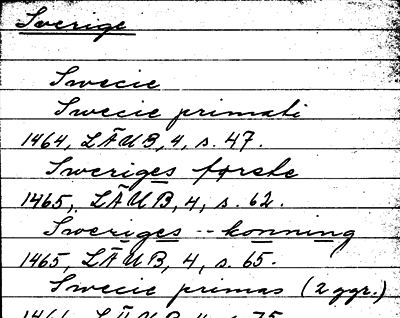 Sverige
Swecie
Swecie primati
1464, LÄUB, 4, s. 47.
Sweriges første
1465, LÄUB, 4, s. 62.
Sweriges -- konning
1465, LÄUB, 4, s. 65.
Swecie primas (2 ggr.)
1466, LÄUB, 4, s. 75